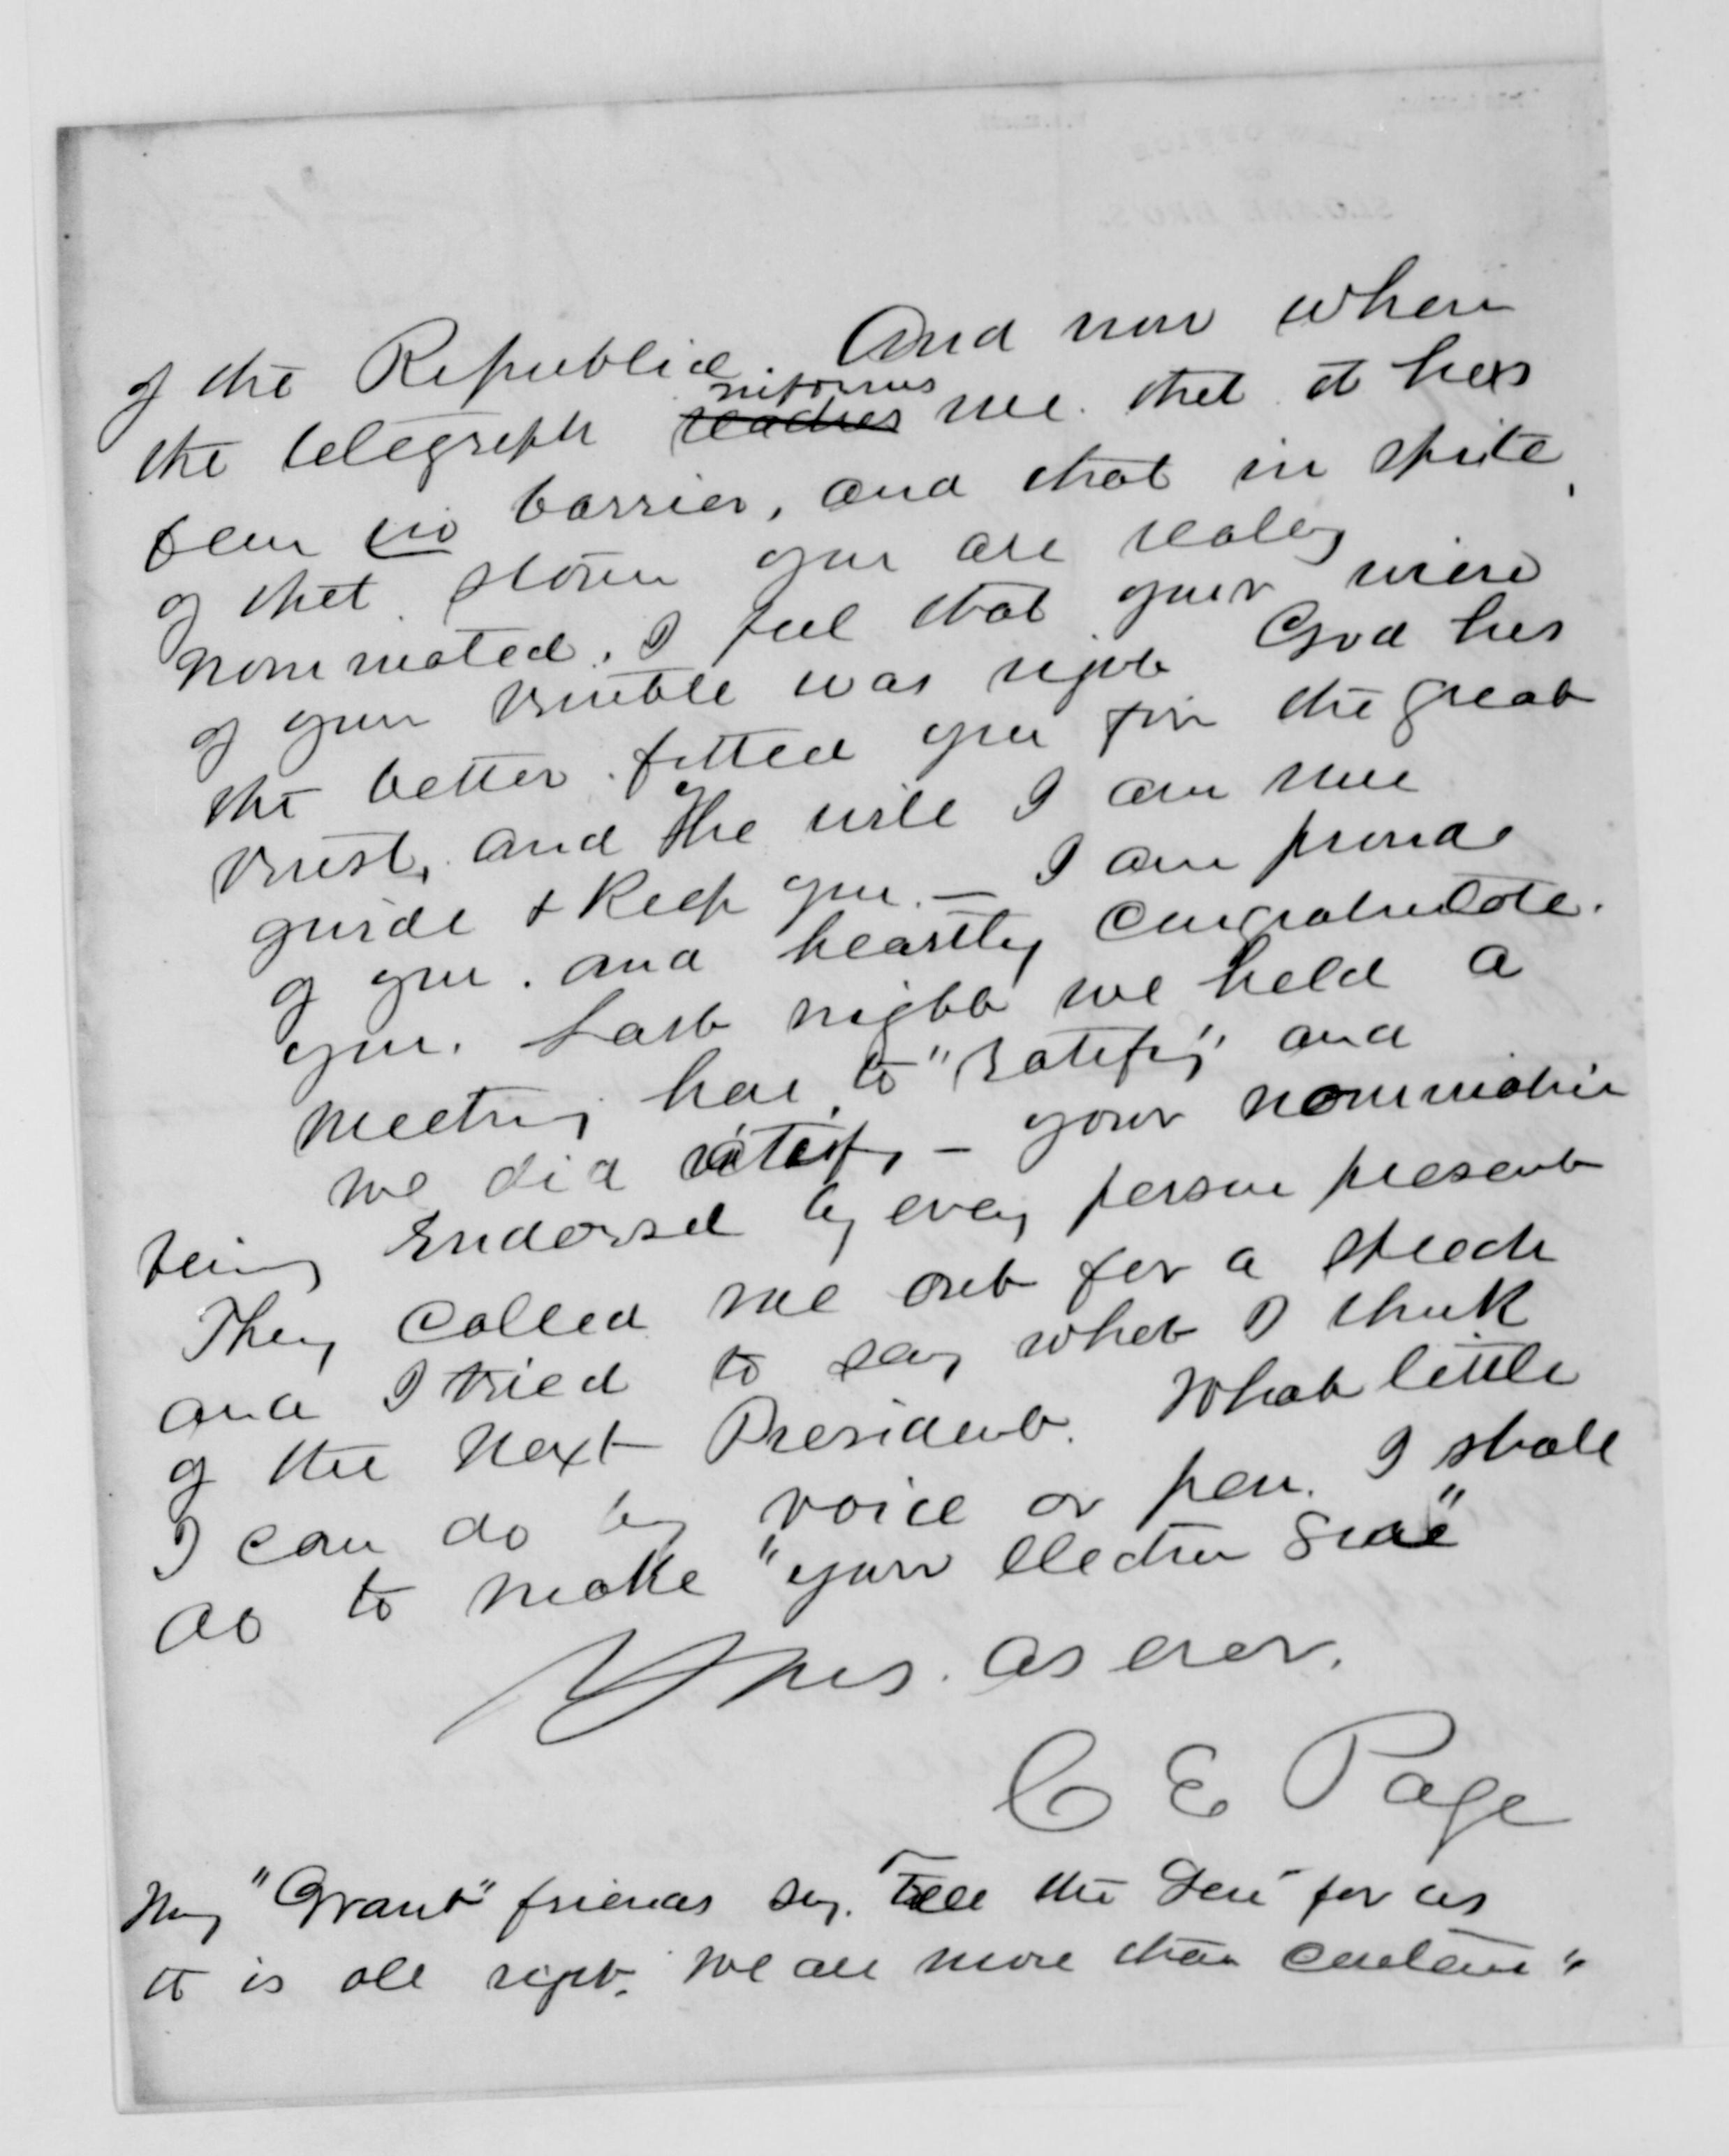 of the Republic. And now when
the telegraph reaches informs me that it has
been no barrier, and that in spite
of that storm you are really
nominated. I feel that your view
of your trouble was right God has
the better fitted you for the great
trust, and He will I am sure
guide & Keep you. — I am proud
of you. and heartily congratulate
you. Last night we held a
meeting here, to "ratify" and
we did ratify — your nomination
being Endorsed by every person present
They called me out for a speech
and I tried to say what I think
of the Next President. What little
I can do by voice or pen. I shall
do to make "your election sure"
Yours as ever.
C E Page
My "Grant" friends say. "Tell the Gen for us
it is all right. We are more than content"